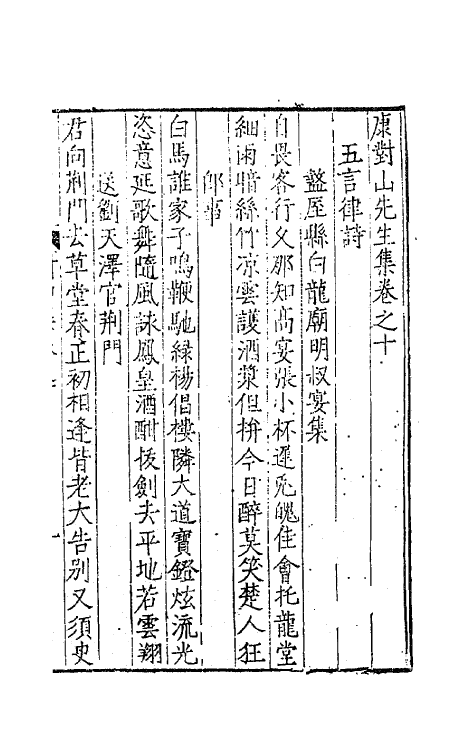 康對山先生集卷之十
五言律詩
盩厔縣白龍廟明叔宴集
自畏客行久那知高宴張小杯遲兕魄佳會托龍堂
細雨暗絲竹凉雲護酒漿但拚今日醉莫笑楚人狂
即事
白馬誰家子鳴鞭馳緑楊倡樓隣大道寶鐙炫流光
恣意延歌舞隨風詠鳳皇酒酣拔劍去平地若雲翔
送劉天澤官荆門
君向荆門去草堂春正初相逢皆老大告别又須臾